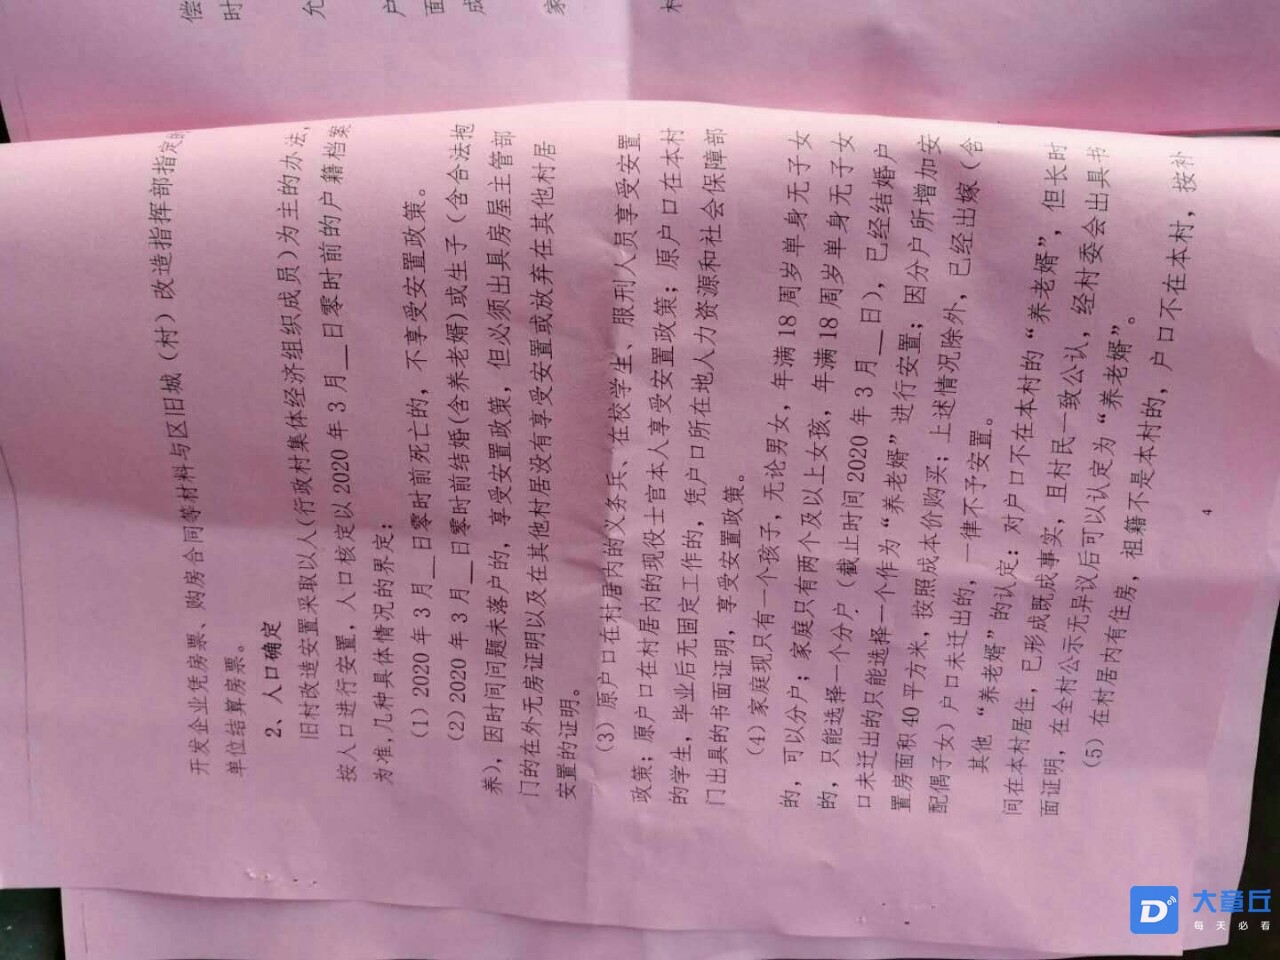 开发企业凭房票、购房合同等材料与区旧城（村）改造指挥部指定的
单位结算房票。
2、人口确定
旧村改造安置采取以人(行政村集体经济组织成员)为主的办法,
按人口进行安置，人口核定以2020年3月__日零时前的户籍档案
为准,几种具体情况的界定：
（1）2020年3月__日零时前死亡的，不享受安置政策。
（2）2020年3月__日零时前结婚(含养老婿)或生子（含合法抱
养)，因时间问题未落户的，享受安置政策，但必须出具房屋主管部
门的在外无房证明以及在其他村居没有享受安置或放弃在其他村居
安置的证明。
（3）原户口在村居内的义务兵、在校学生、服刑人员享受安置
政策；原户口在村居内的现役士官本人享受安置政策；原户口在本村
的学生，毕业后无固定工作的，凭户口所在地人力资源和社会保障部
门出具的书面证明，享受安置政策。
（4）家庭现只有一个孩子，无论男女，年满18周岁单身无子女
的，可以分户；家庭只有两个及以上女孩，年满18周岁单身无子女
的，只能选择一个分户（截止时间2020年3月__日），已经结婚户
口未迁出的只能选择一个作为“养老婿”进行安置；因分户所增加安
置房面积40平方米，按照成本价购买；上述情况除外，已经出嫁（含
配偶子女）户口未迁出的，一律不予安置。
其他“养老婿”的认定：对户口不在本村的“养老婿”，但长时
间在本村居住，已形成既成事实，且村民一致公认，经村委会出具书
面证明，在全村公示无异议后可以认定为“养老婿”。
（5）在村居内有住房，祖籍不是本村的，户口不在本村，按补
4
偿
时
允
户
面
成
家
大章丘
每天必看